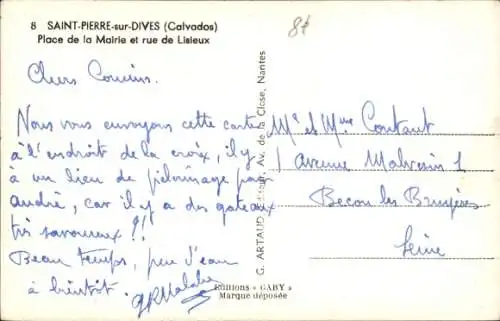 8 SAINT-PIERRE-sur-DIVES (Calvados)
Place de la Mairie et rue de Lisieux
8f
Chers Cousins.
Nous vous envoyons cette carte
à l'endroit de la croix, il y
a un lieu de pélérinage pour
andré, car il y a des gateaux
très savoureux !!
Beau temps, peu d'eau
à bientôt.
G. ARTAUD Éditeur, Av. de la Close, Nantes
Mr et Mme Coutant
1 avenue Malvesin 1
Becon les Bruyères
Seine
Editions « GABY »
Marque déposée